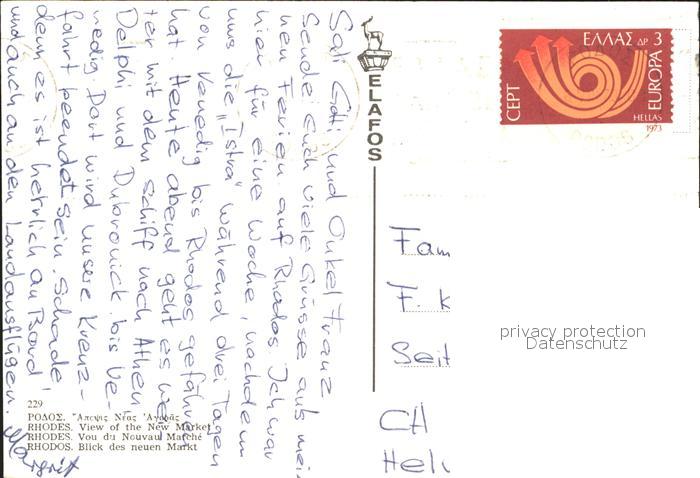 Sali Gotti und Onkel Franz
Sende Euch viele Grüsse aus mei-
nen Ferien auf Rhodos. Ich war
hier für eine Woche, nachdem
uns die „Istra" während drei Tagen
von Venedig bis Rhodos gefahren
hat. Heute abend geht es wei-
ter mit dem Schiff nach Athen
Delphi und Dubrovnick bis Ve-
nedig. Dort wird unsere Kreuz-
fahrt beendet sein. Schade,
denn es ist herrlich an Bord
und auch an den Landausflügen.
Margrit
ELAFOS
CEPT
ΕΛΛΑΣ ΔΡ 3
EUROPA
HELLAS
1973
Fam
F. K
Seit
CH
Helv
privacy protection
Datenschutz
229
ΡΟΔΟΣ. Ἄποψις Νέας Ἀγορᾶς
RHODES. View of the New Market
RHODES. Vou du Nouvau Marché
RHODOS. Blick des neuen Markt